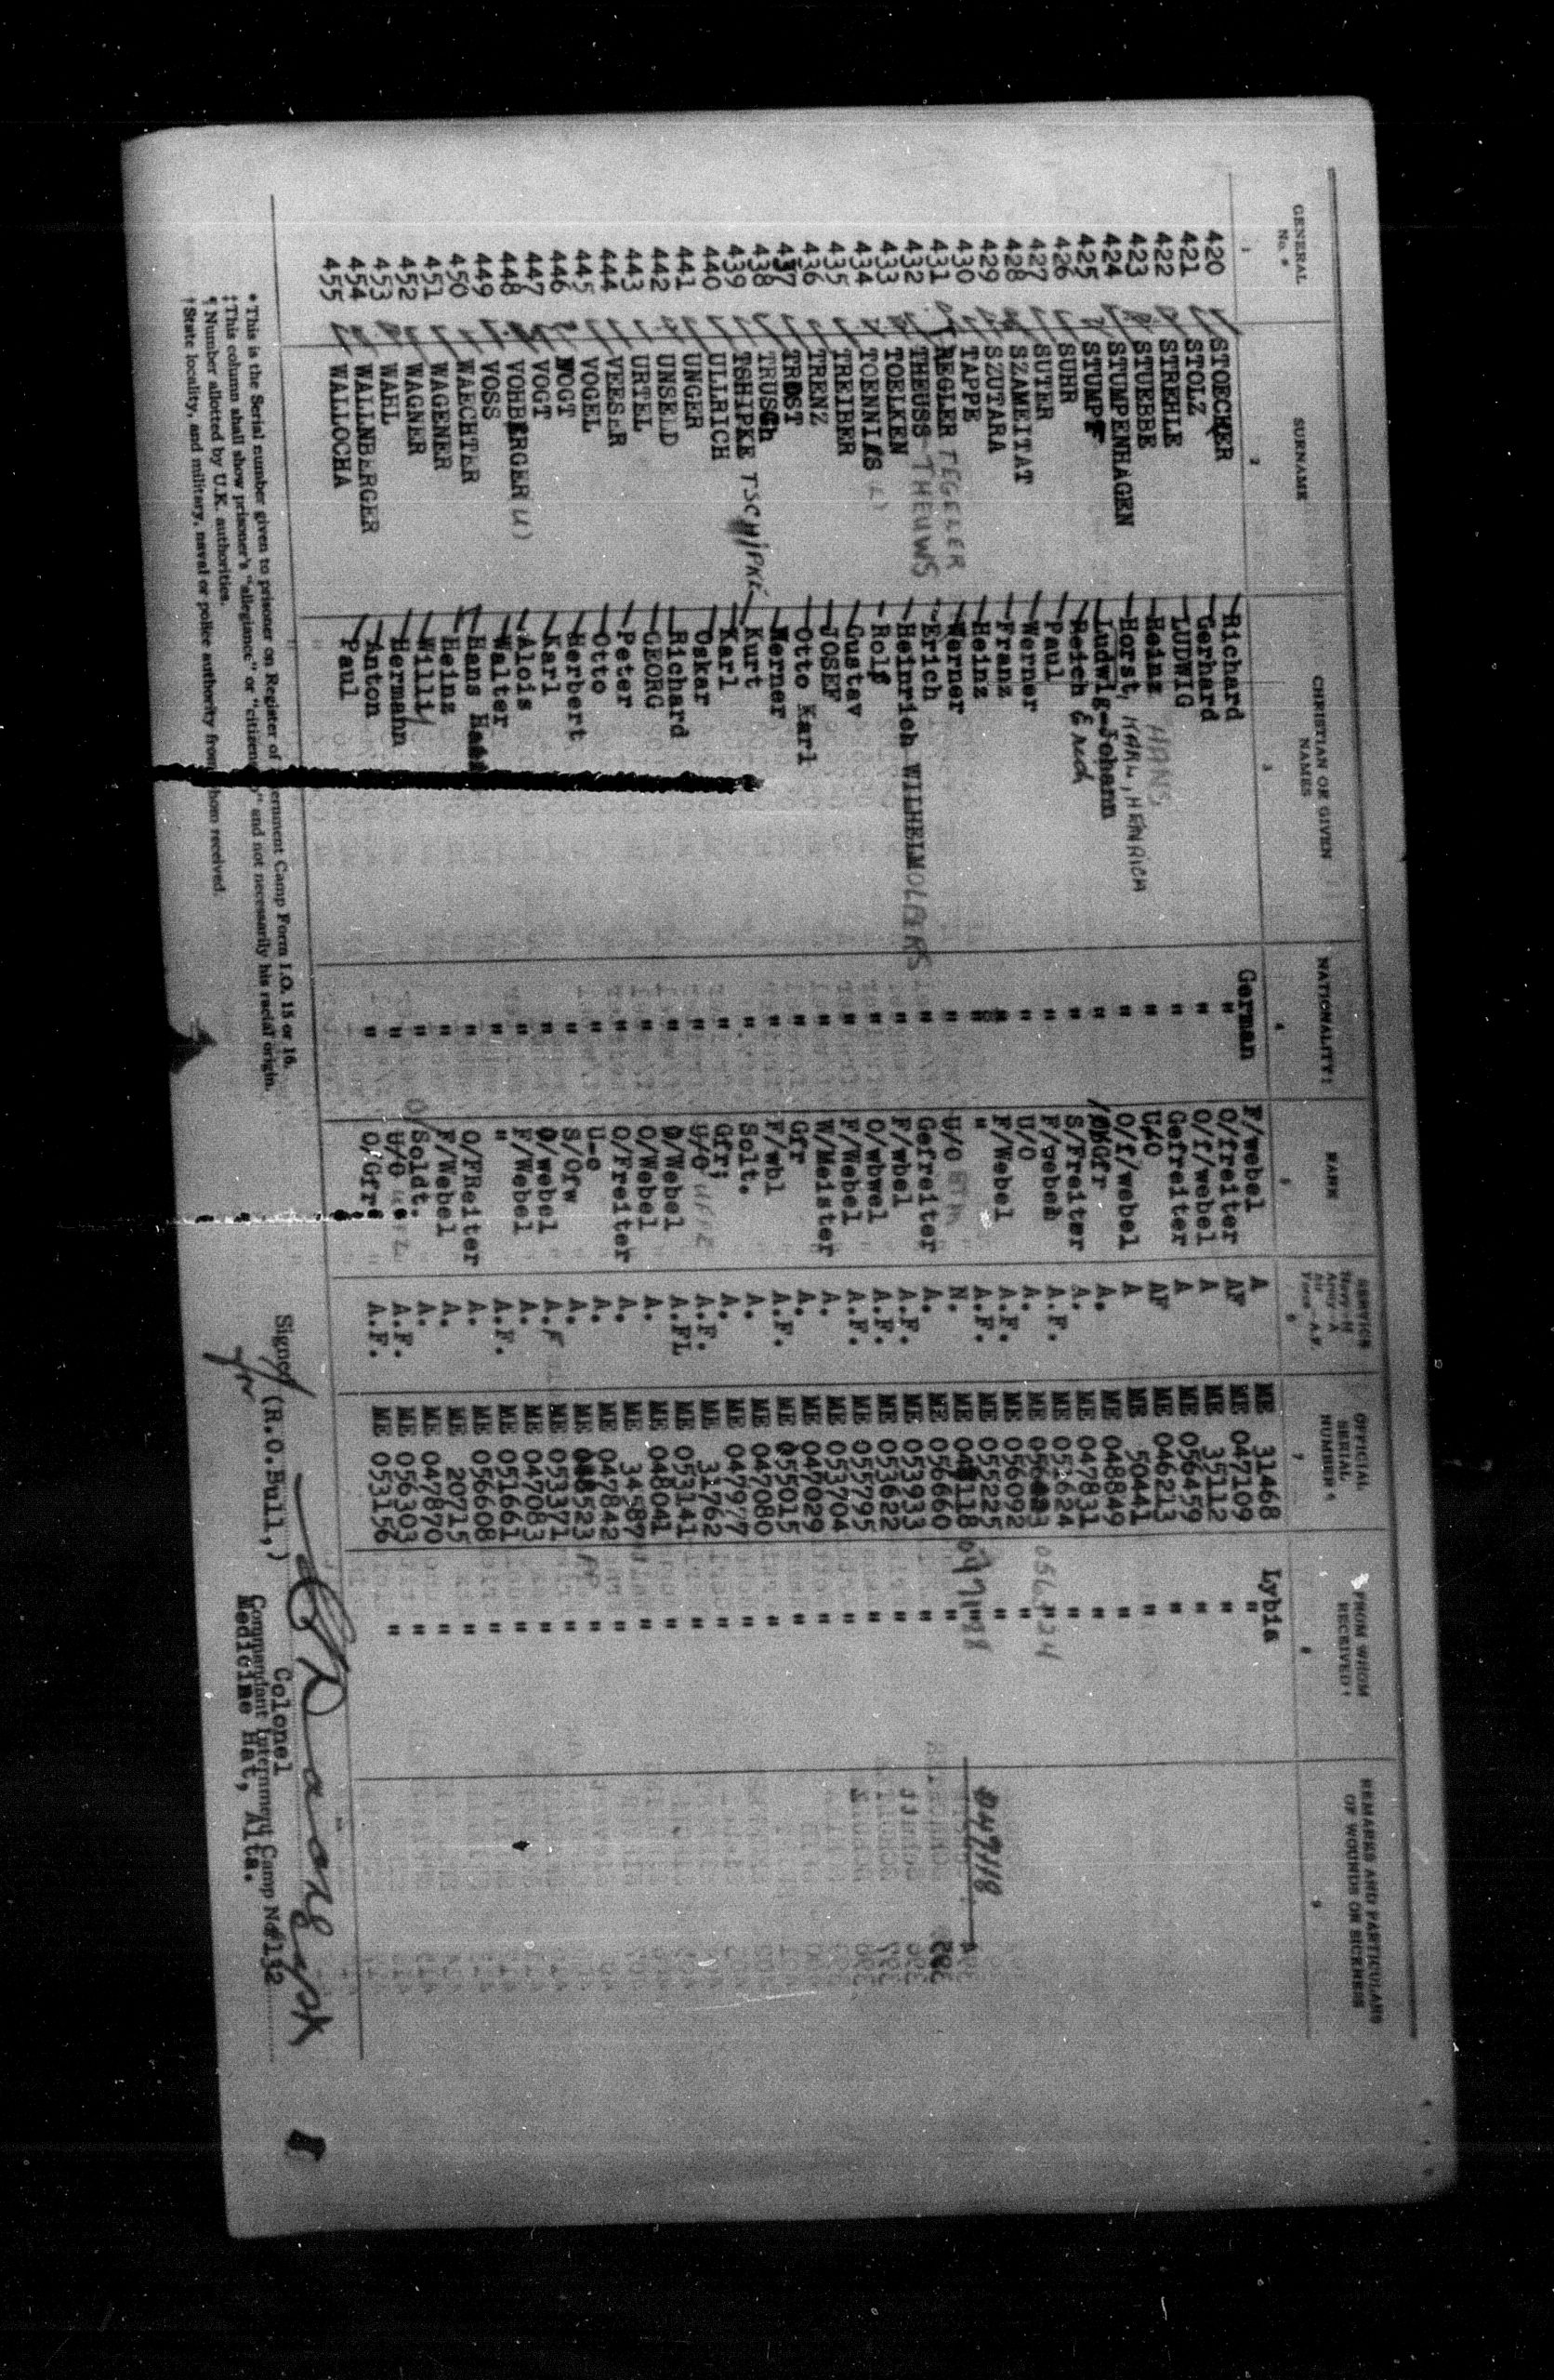 GENERAL No.* SURNAME CHRISTIAN OR GIVEN NAMES NATIONALITY‡ RANK SERVICE Navy—N Army—A Air Force—A.F. OFFICIAL SERIAL NUMBER¶ FROM WHOM RECEIVED† REMARKS AND PARTICULARS OF WOUNDS OR SICKNESS
1 2 3 4 5 6 7 8 9
420 STOECKER Richard German F/webel A ME 31468 Lybia
421 STOLZ Gerhard " O/freiter AF ME 047109 "
422 STREHLE LUDWIG " O/f/webel A ME 35112 "
423 STUEBBE Heinz HANS " Gefreiter A ME 056459 "
424 STUMPENHAGEN Horst, KARL, HEINRICH " U/O AF ME 046213 "
425 STUMPF Ludwig-Johann " O/f/webel A ME 50441 "
426 SUHR Reich Erich " O/Gfr A. ME 048849 "
427 SUTER Paul " S/Freiter A. ME 047831 "
428 SZAMEITAT Werner " F/webel A.F. ME 053624 "
429 SZUTARA Franz " U/O A. ME "
430 TAPPE Heinz " F/Webel A.F. ME 056092 "
431 TEGELER Werner " " A.F. ME 055225 "
432 THEUSS THEUWS Erich " U/O BTM N. ME 047118 " 047118
433 TOELKEN Heinrich WILHELM OLFERS " Gefreiter A. ME 056660 "
434 TOENNIES (L) Rolf " F/wbel A.F. ME 053933 "
435 TREIBER Gustav " O/wbwel A.F. ME 053622 "
436 TRENZ JOSEF " F/Webel A.F. ME 055795 "
437 TROST Otto Karl " W/Meister A. ME 053704 "
438 TRUSCh Werner " Gfr A. ME 047029 "
439 TSHIPKE TSCHIPKE Kurt " F/wbl A.F. ME 055015 "
440 ULLRICH Karl " Solt. A. ME 047080 "
441 UNGER Oskar " Gfr; A. ME 047977 "
442 UNSELD Richard " U/O UFFZ A.F. ME 31762 "
443 URTEL GEORG " O/Webel A.FL ME 053141 "
444 VEESER Peter " O/Webel A. ME 048041 "
445 VOGEL Otto " O/Freiter A. ME 34587 "
446 VOGT Herbert " U-o A. ME 047842 "
447 VOGT Karl " S/Ofw A. ME 048523 "
448 VOHBERGER (U) Alois " O/webel A.F ME 053371 "
449 VOSS Walter " F/Webel A.F. ME 047083 "
450 WAECHTER Hans " " A. ME 051661 "
451 WAGENER Heinz " O/FReiter A. ME 056608 "
452 WAGNER Willi " F/Webel A. ME 20715 "
453 WAHL Hermann " Soldt. A. ME 047870 "
454 WALLNBERGER Anton " U/O UFFZ A.F. ME 056303 "
455 WALLOCHA Paul " O/Gfre A.F. ME 053156 "
*This is the Serial number given to prisoner on Register of Government Camp Form I.O. 15 or 16.
‡This column shall show prisoner's "allegiance" or "citizenship" and not necessarily his racial origin.
¶Number allotted by U.K. authorities.
†State locality, and military, naval or police authority from whom received.
Signed (R.O.Bull,) Colonel
for Commandant Internment Camp No. 132
Medicine Hat, Alta.